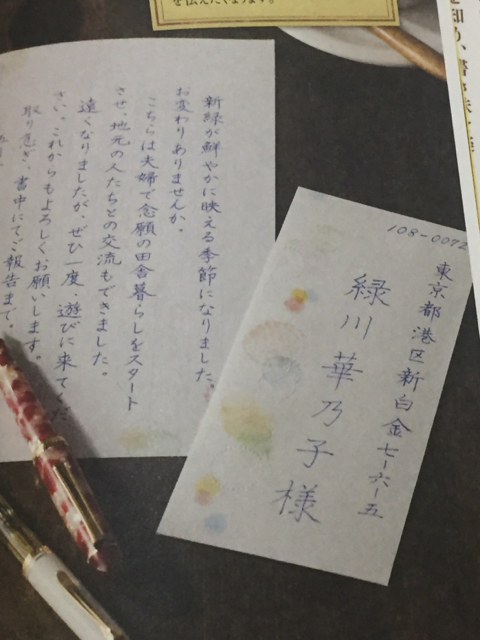 を伝えたくなります。
新緑が鮮やかに映える季節になりました。
お変わりありませんか。
こちらは夫婦で念願の田舎暮らしをスタート
させ、地元の人たちとの交流もできました。
遠くなりましたが、ぜひ一度、遊びに来てくだ
さい。これからもよろしくお願いします。
取り急ぎ、書中にてご報告まで。
108-0072
東京都港区新白金七-六-五
緑川華乃子様